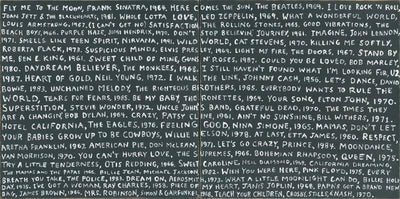 FLY ME TO THE MOON, FRANK SINATRA, 1964. HERE COMES THE SUN, THE BEATLES, 1969. I LOVE ROCK 'N ROLL,
JOAN JETT & THE BLACKHEARTS, 1981. WHOLE LOTTA LOVE, LED ZEPPELIN, 1969. WHAT A WONDERFUL WORLD,
LOUIS ARMSTRONG, 1967. (I CAN'T GET NO) SATISFACTION, THE ROLLING STONES, 1965. GOOD VIBRATIONS, THE
BEACH BOYS, 1966. PURPLE HAZE, JIMI HENDRIX, 1970. DON'T STOP BELIEVIN', JOURNEY, 1981. IMAGINE, JOHN LENNON,
1971. SMELLS LIKE TEEN SPIRIT, NIRVANA, 1991. WILD WORLD, CAT STEVENS, 1970. KILLING ME SOFTLY,
ROBERTA FLACK, 1973. SUSPICIOUS MINDS, ELVIS PRESLEY, 1969. LIGHT MY FIRE, THE DOORS, 1967. STAND BY
ME, BEN E. KING, 1961. SWEET CHILD O' MINE, GUNS N' ROSES, 1987. COULD YOU BE LOVED, BOB MARLEY,
1980. DAYDREAM BELIEVER, THE MONKEES, 1968. I STILL HAVEN'T FOUND WHAT I'M LOOKING FOR, U2,
1987. HEART OF GOLD, NEIL YOUNG, 1972. I WALK THE LINE, JOHNNY CASH, 1956. LET'S DANCE, DAVID
BOWIE, 1983. UNCHAINED MELODY, THE RIGHTEOUS BROTHERS, 1965. EVERYBODY WANTS TO RULE THE
WORLD, TEARS FOR FEARS, 1985. BE MY BABY, THE RONETTES, 1963. YOUR SONG, ELTON JOHN, 1970.
SUPERSTITION, STEVIE WONDER, 1972. UNCLE JOHN'S BAND, GRATEFUL DEAD, 1970. THE TIMES THEY
ARE A CHANGIN', BOB DYLAN, 1964. CRAZY, PATSY CLINE, 1961. AIN'T NO SUNSHINE, BILL WITHERS, 1971.
HOTEL CALIFORNIA, THE EAGLES, 1976. FEELING GOOD, NINA SIMONE, 1965. MAMAS, DON'T LET
YOUR BABIES GROW UP TO BE COWBOYS, WILLIE NELSON, 1978. AT LAST, ETTA JAMES, 1960. RESPECT
ARETHA FRANKLIN, 1967. AMERICAN PIE, DON MCLEAN, 1971. LET'S GO CRAZY, PRINCE, 1984. MOONDANCE,
VAN MORRISON, 1970. YOU CAN'T HURRY LOVE, THE SUPREMES, 1966. BOHEMIAN RHAPSODY, QUEEN, 1975.
TRY A LITTLE TENDERNESS, OTIS REDDING, 1966. SWEET CAROLINE, NEIL DIAMOND, 1969. CALIFORNIA DREAMING,
THE MAMAS AND THE PAPAS, 1965. BILLIE JEAN, MICHAEL JACKSON, 1982. WISH YOU WERE HERE, PINK FLOYD, 1975. EVERY
BREATH YOU TAKE, THE POLICE, 1983. DREAM ON, AEROSMITH, 1973. WHAT A LITTLE MOONLIGHT CAN DO, BILLIE HOLI
DAY, 1935. I'VE GOT A WOMAN, RAY CHARLES, 1958. PIECE OF MY HEART, JANIS JOPLIN, 1968. PAPA'S GOT A BRAND NEW
BAG, JAMES BROWN, 1965. MRS. ROBINSON, SIMON & GARFUNKEL, 1968. TEACH YOUR CHILDREN, CROSBY, STILLS, & NASH, 1970.